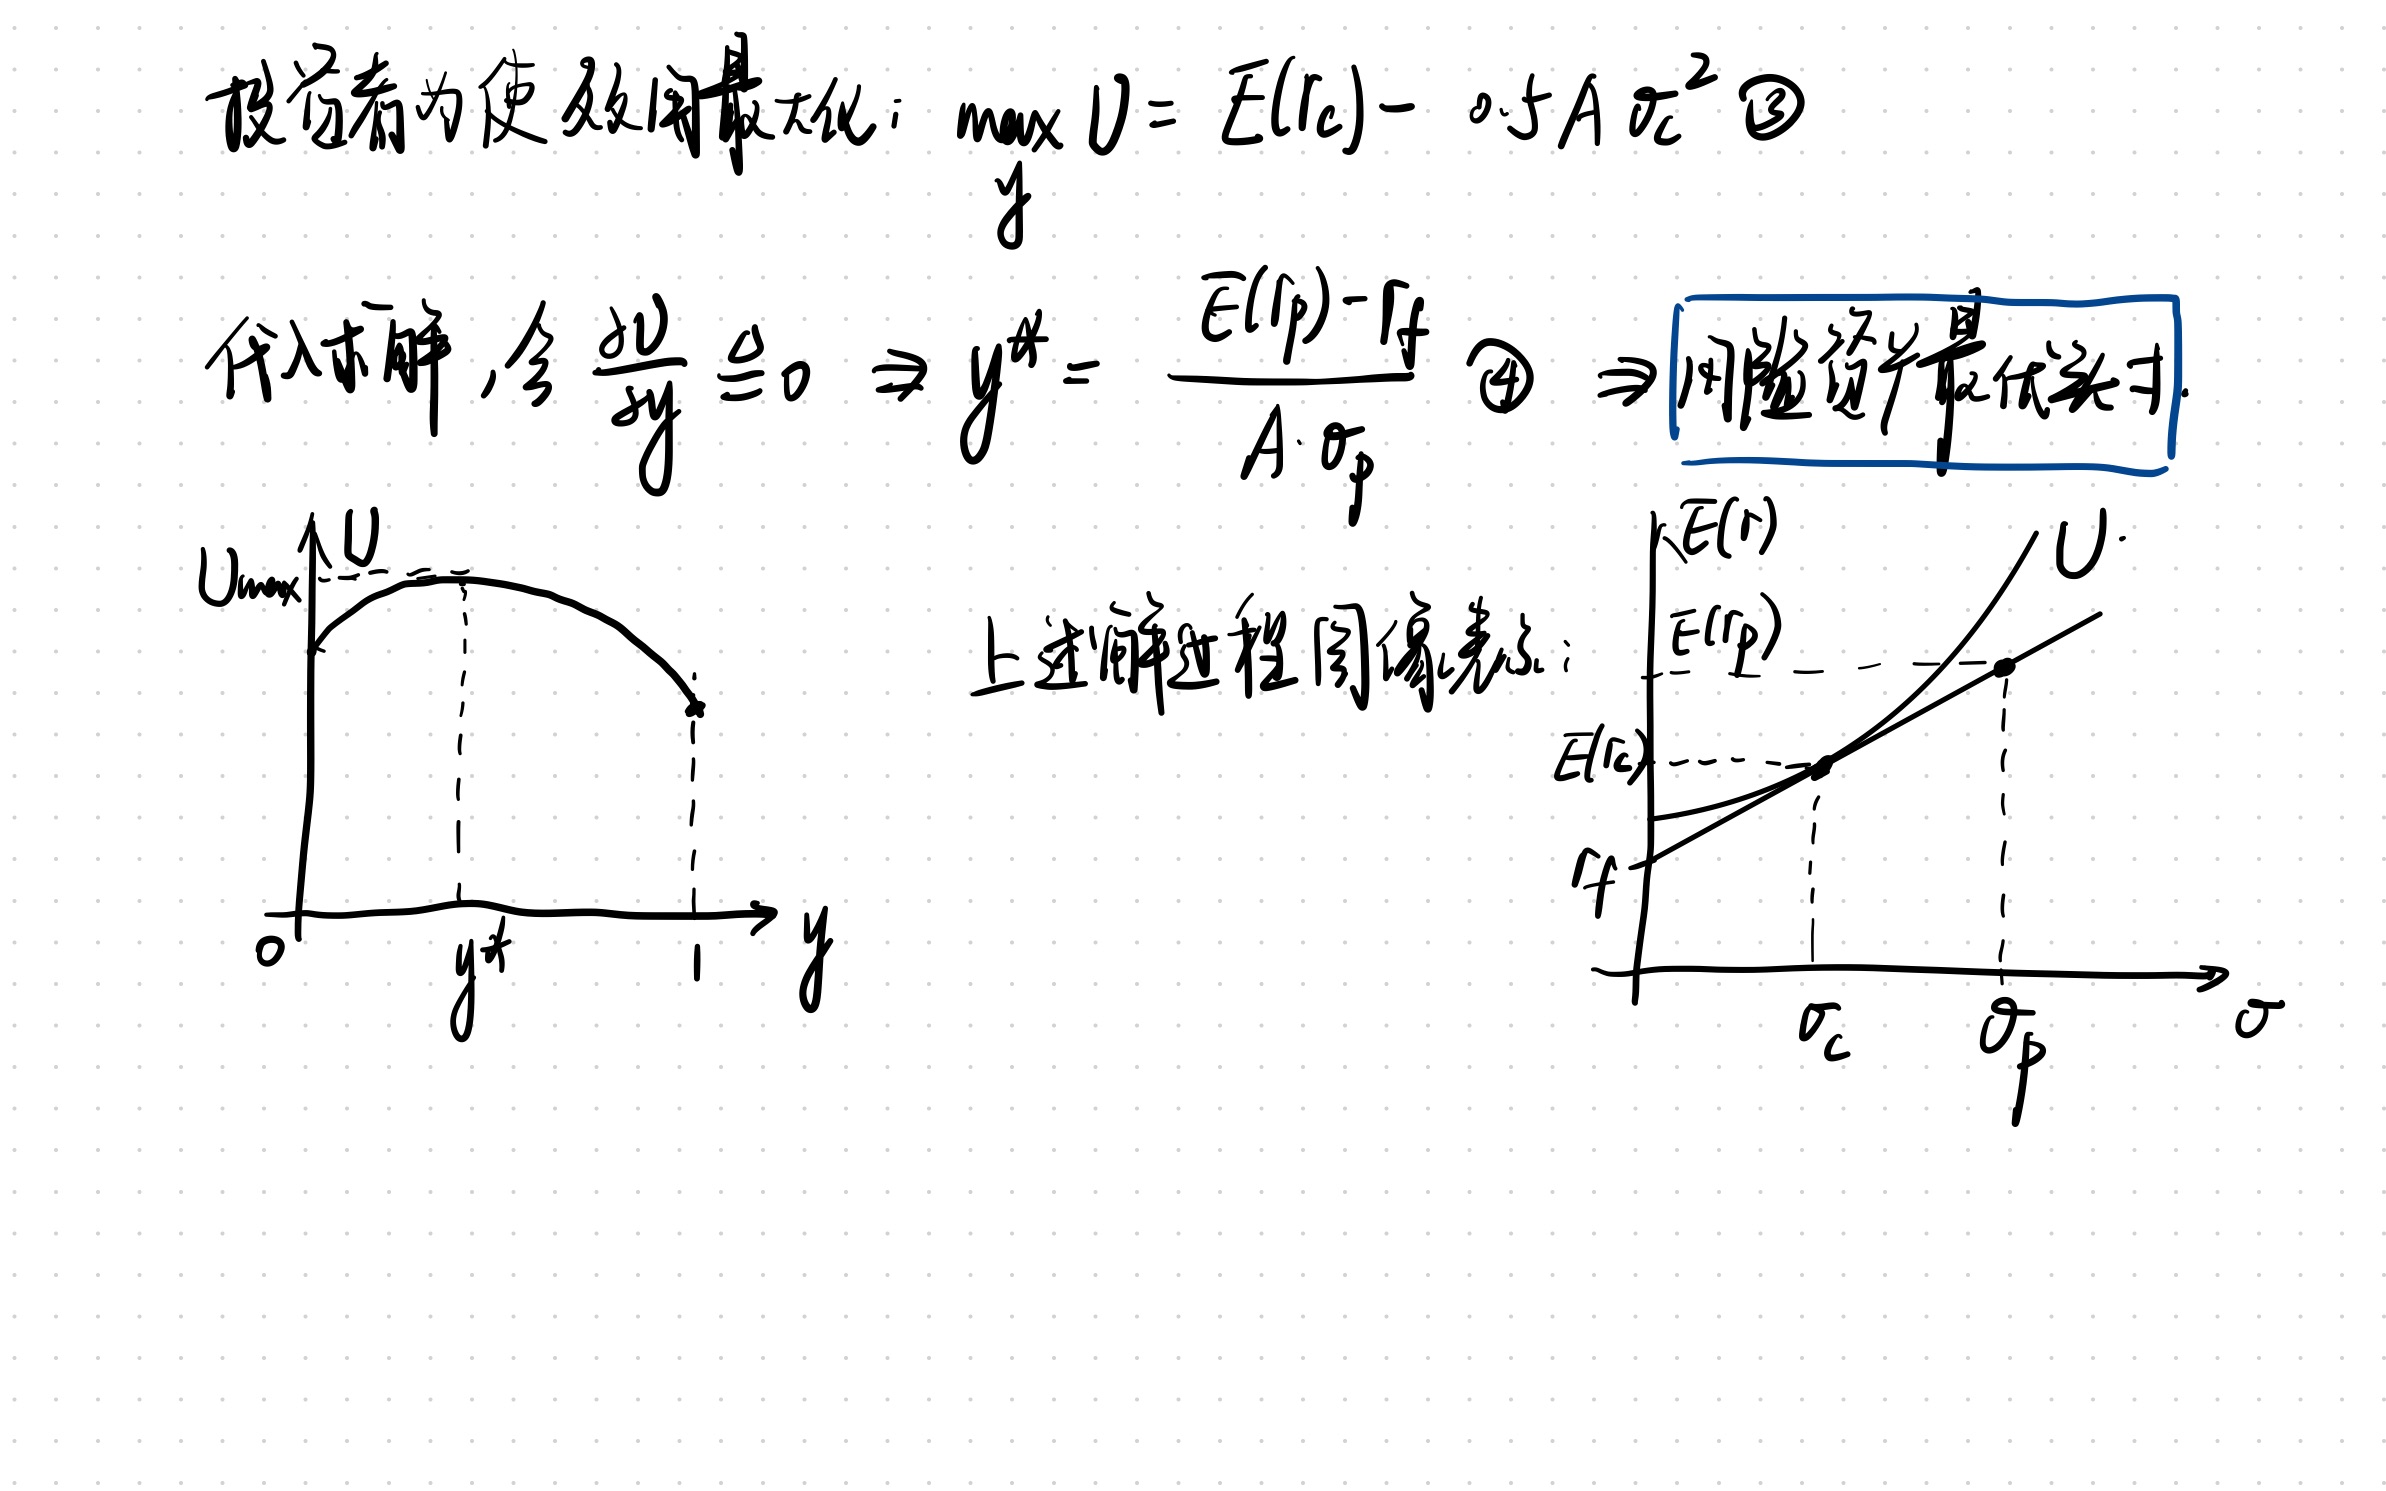 投资者为使效用最大化: max U = E(rc) - 0.5Aσc² ③
y
代入求解,令 ∂U/∂y ≜ 0 ⇒ y* = (E(rp) - rf)/(A·σp) ④ ⇒ 风险资产最优头寸.
U
Umax
0
y*
1
y
上述解过程图像表示:
E(r)
U.
E(rp)
E(rc)
rf
σc
σp
σ